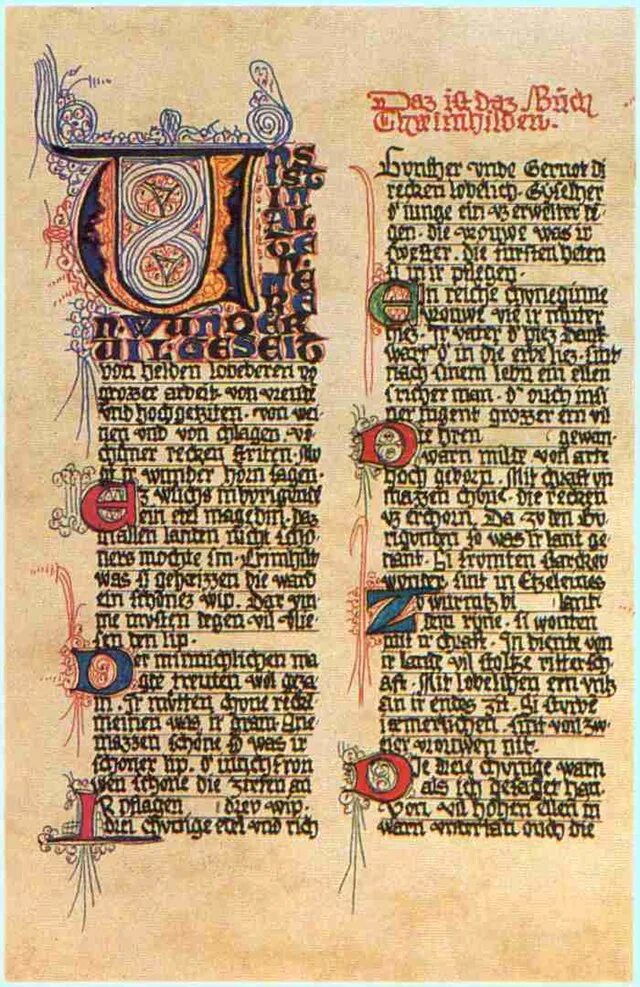 UNS
IST
IN
AL
TE
N.
ME
RE
N. WUNDER
UIL GESEIT
von helden lobeberen vō
grozzer arbeit. von vreude
vnd hochgeziten. von wei
nen vnd von chlagen. vō
chuner recken striten. Mv
gt ir wunder horn sagen.
Ez wuchs in byrigunde
ein etel magedin. daz
in allen landen nicht scho
ners mochte sin. Crimhilt
was si geheizzen die ward
ein schonez wip. Dar vm
me mvsten degen vil vlie
sen den lip.
Der minnichlichen ma
gde treuten wol geza
m. Ir mvtten chone recke
meinen was ir gram. Ane
mazzen schone so was ir
schoner lip. d' iunchfron
wen schone die zierten an
IR pflagen diev wip.
drei chvnige etel vnd rich
Daz ist daz Buch
Chreimhilden.
Gunther vnde Gernot di
recken lobelich. Gyselher
d' iunge ein vz erwelter de
gen. die vrouwe was ir
swester. die fursten heten
si in ir pflegen.
Ein reiche chvneginne
vrouwe vte ir muter
hiez. Ir vater d' hiez Dank
wart d' in die erbe liez. sint
nach sinem lebn ein ellen
s richer man. d' ouch in si
ner iugent grozzer ern vil
Die hren gewan.
warn milte von arte
hoch geborn. Mit chraft vn
mazzen chone. die recken
vz erchorn. Da zv den Bv
rigonden so was ir lant ge
nant. Si frvmten starckev
wonter. sint in Etzeleines
Zv wurmtz bi lant.
dem ryne. si wonten
mit ir chraft. In diente von
ir lande vil stoltze rittersch
aft. Mit lobelichen ern vntz
an ir endes zit. Si sturbe
iamerlichen. sint von zw
eier vrouwen nit.
Die dreie chvnige warn
als ich gesaget han.
Von vil hohen ellen in
warn vntertan ouch die